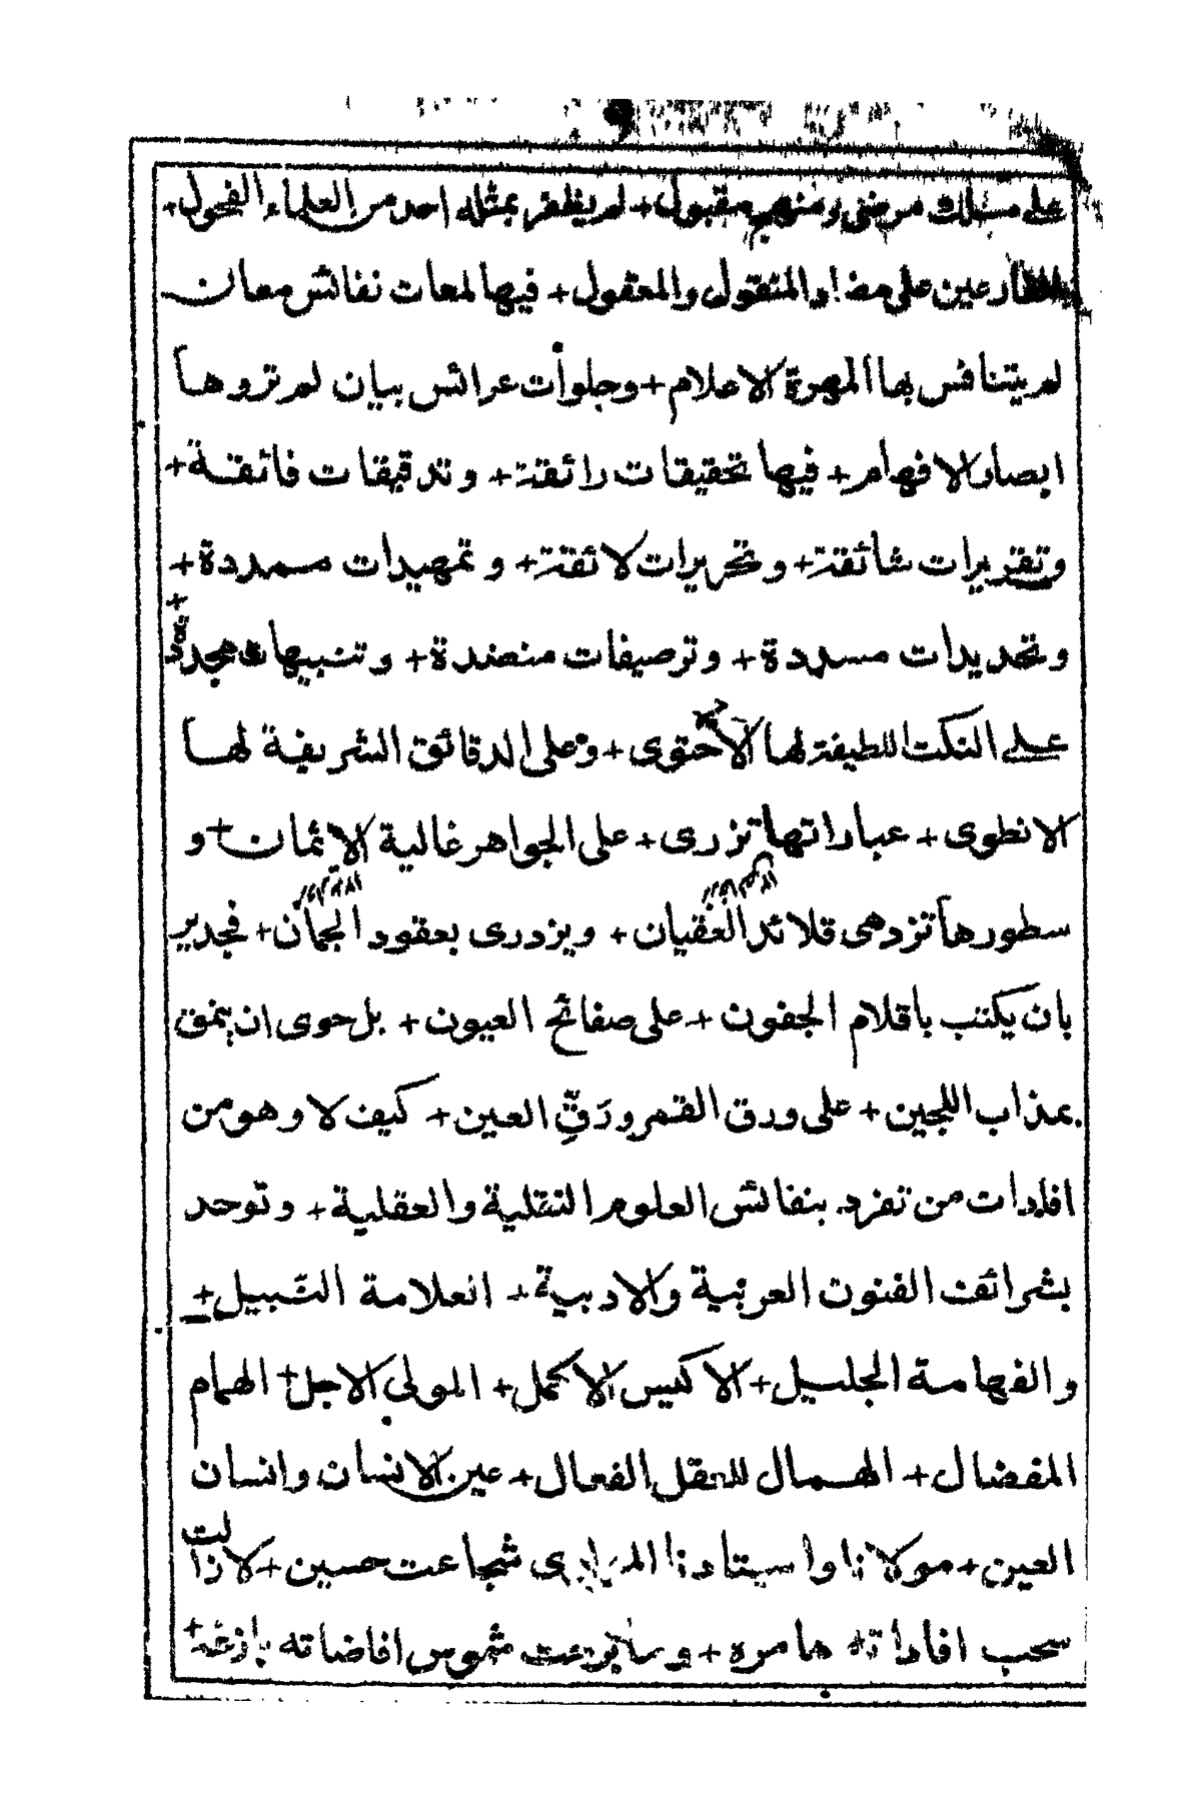 على مسلك مرضى ومنهج مقبول + لم يظفر بمثله احد من العلماء الفحول +
عين على مضار المنقول والمعقول + فيها لمعات نفائس معان
لم يتنافس بها المهرة الاعلام + وجلوات عرائس بيان لم تزوها
ابصار الافهام + فيها تحقيقات رائقة + وتدقيقات فائقة +
وتقريرات شائقة + وتحريرات لائقة + وتمهيدات ممددة +
وتحديدات مسددة + وترصيفات منضدة + وتنبيهات مجددة +
على النكت اللطيفة لها الاحتوى + وعلى الدقائق الشريفة لها
الانطوى + عباراتها تزرى + على الجواهر غالية الاثمان + و
سطورها تزدهى قلائد العقيان + ويزدرى بعقود الجمان + فجدير
بان يكتب باقلام الجفون + على صفائح العيون + بل حوى ان ينمق
بمذاب اللجين + على ورق القمر ورَقِّ العين + كيف لا وهو من
افادات من تفرد بنفائس العلوم النقلية والعقلية + وتوحد
بشرائف الفنون العربية والادبية + العلامة النبيل +
والفهامة الجليل + الاكيس الاكمل + المولى الاجل + الهمام
المفضال + الهمال للعقل الفعال + عين الانسان وانسان
العين + مولانا واستاذنا المولوى شجاعت حسين + لازالت
سحب افاداته هامرة + و شموس افاضاته بازغة +